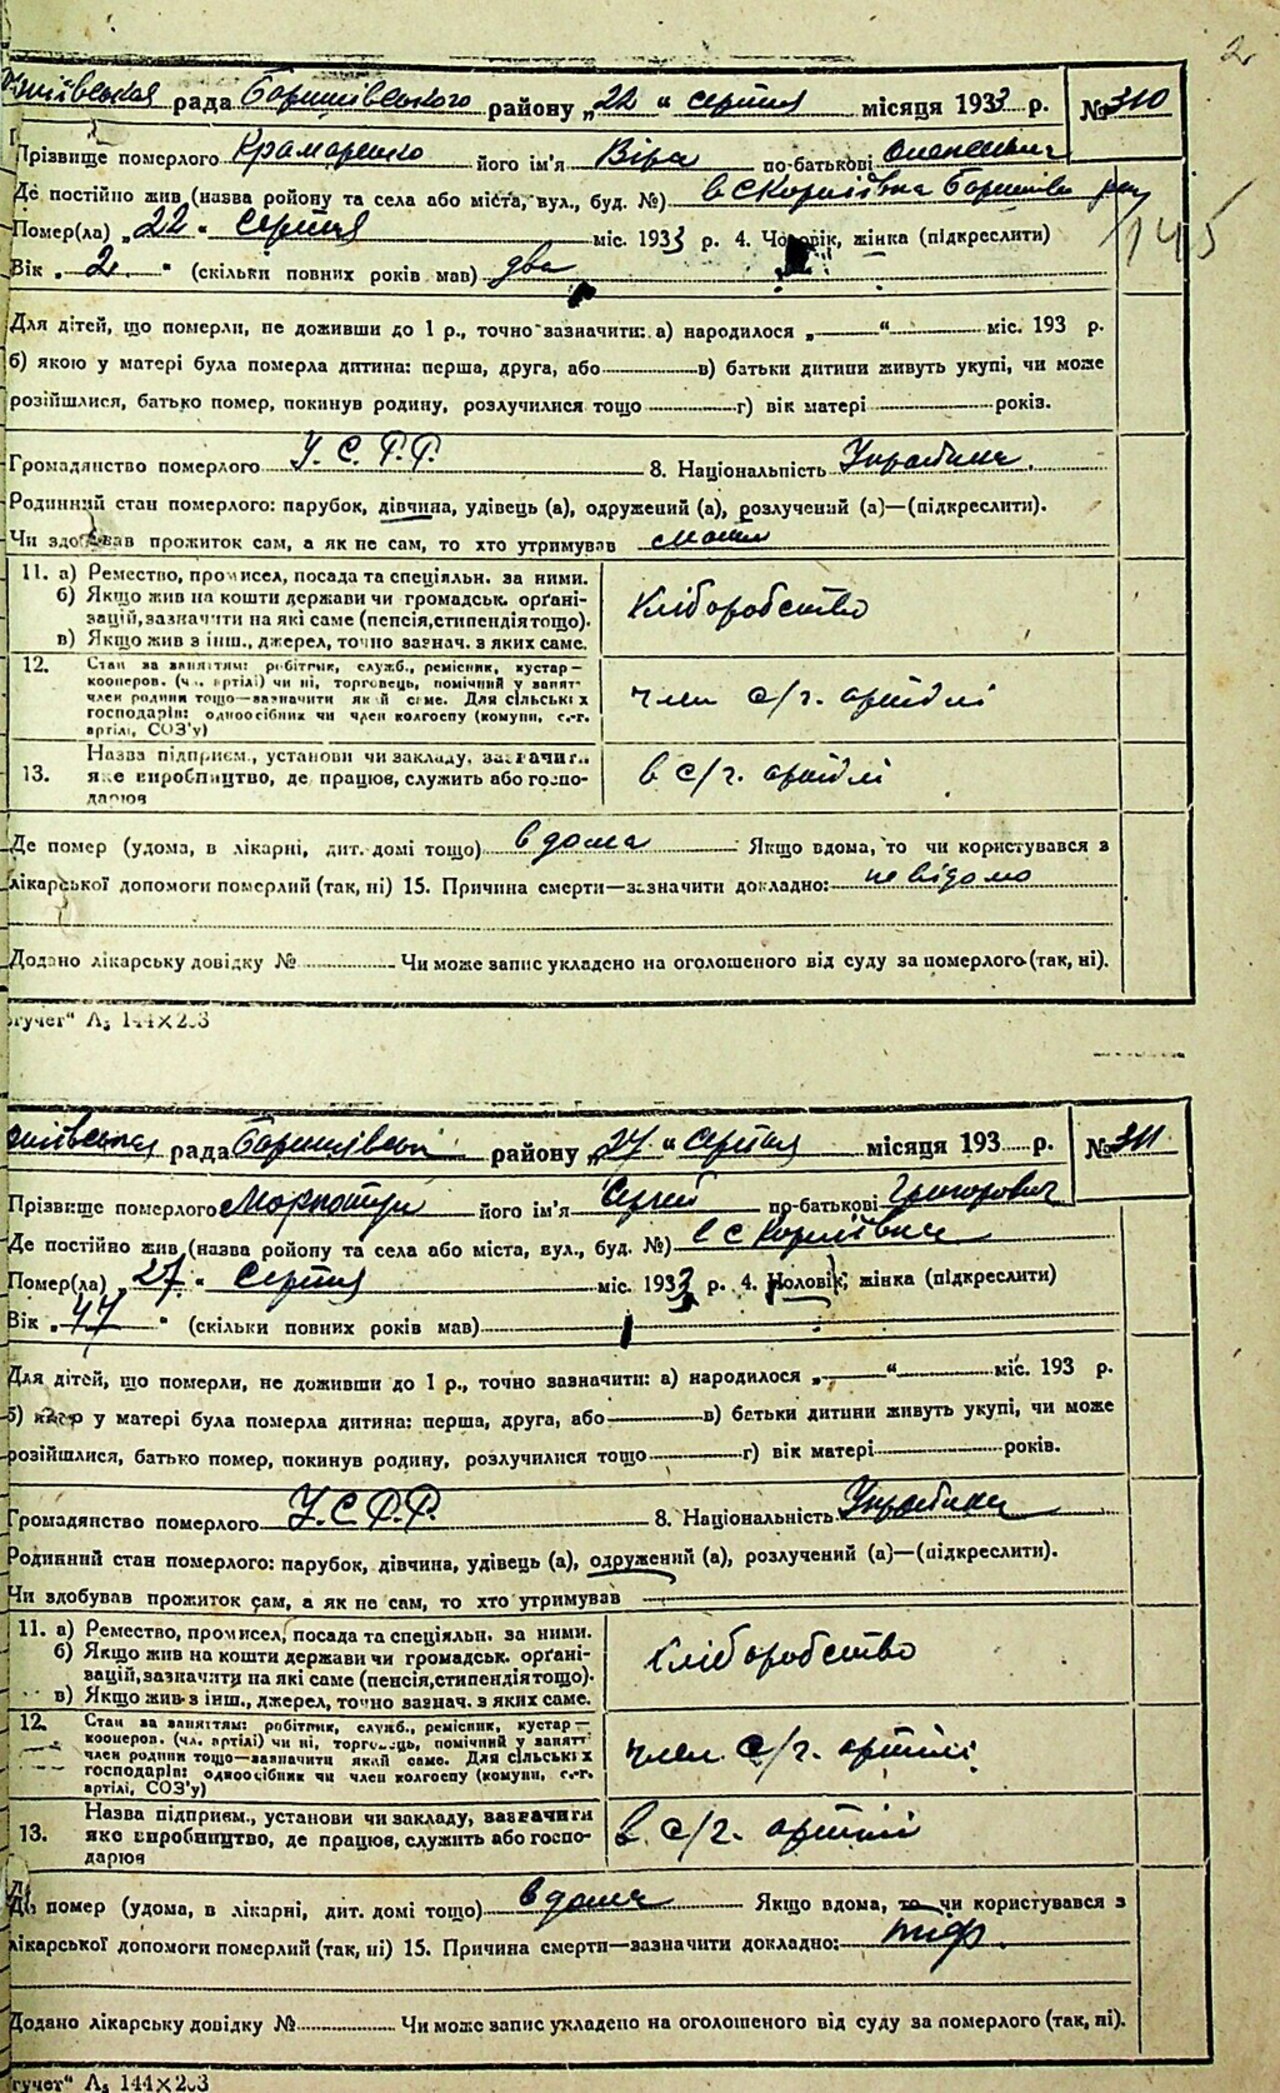 2
рада Баришівського району „22“ серпня місяця 1933 р. № 310
Прізвище померлого Крамаренко його ім'я Віра по-батькові
Де постійно жив (назва ройону та села або міста, вул., буд. №) в с Корніївка Баришів. рай
145
Помер(ла) „22“ Серпня міс. 1933 р. 4. Чоловік, жінка (підкреслити)
Вік „2“ (скільки повних років мав) два
Для дітей, що померли, не доживши до 1 р., точно зазначити: а) народилося „ “ міс. 193 р.
б) якою у матері була померла дитина: перша, друга, або в) батьки дитини живуть укупі, чи може
розійшлися, батько помер, покинув родину, розлучилися тощо г) вік матері років.
Громадянство померлого У. С. Р. Р. 8. Національність Українка.
Родинний стан померлого: парубок, дівчина, удівець (а), одружений (а), розлучений (а)—(підкреслити).
Чи здобував прожиток сам, а як не сам, то хто утримував
11. а) Ремество, промисел, посада та спеціяльн. за ними.
б) Якщо жив на кошти держави чи громадськ. орґані-
зацій, зазначити на які саме (пенсія, стипендія тощо).
в) Якщо жив з інш., джерел, точно зазнач. з яких саме.
Хліборобство
12. Стан за заняттям: робітник, служб., ремісник, кустар—
кооперов. (чл. артілі) чи ні, торговець, помічний у занят.
член родини тощо—зазначити який саме. Для сільських
господарів: одноосібник чи член колгоспу (комуни, с.-г.
артілі, СОЗ'у)
член с/г. артілі
13. Назва підприєм., установи чи закладу, зазначити
яке виробництво, де працює, служить або госпо-
дарює
в с/г. артілі
Де помер (удома, в лікарні, дит. домі тощо) вдома Якщо вдома, то чи користувався з
лікарської допомоги померлий (так, ні) 15. Причина смерти—зазначити докладно: невідомо
Додано лікарську довідку № Чи може запис укладено на оголошеного від суду за померлого (так, ні).
гучет“ А₅ 144×203
рада Баришівськ району „27“ серпня місяця 193 р. № 311
Прізвище померлого його ім'я Сергій по-батькові Григорович
Де постійно жив (назва ройону та села або міста, вул., буд. №) в с Корніївка
Помер(ла) „27“ Серпня міс. 1933 р. 4. Чоловік, жінка (підкреслити)
Вік „47“ (скільки повних років мав)
Для дітей, що померли, не доживши до 1 р., точно зазначити: а) народилося „ “ міс. 193 р.
б) якою у матері була померла дитина: перша, друга, або в) батьки дитини живуть укупі, чи може
розійшлися, батько помер, покинув родину, розлучилися тощо г) вік матері років.
Громадянство померлого У. С. Р. Р. 8. Національність
Родинний стан померлого: парубок, дівчина, удівець (а), одружений (а), розлучений (а)—(підкреслити).
Чи здобував прожиток сам, а як не сам, то хто утримував
11. а) Ремество, промисел, посада та спеціяльн. за ними.
б) Якщо жив на кошти держави чи громадськ. орґані-
зацій, зазначити на які саме (пенсія, стипендія тощо).
в) Якщо жив з інш., джерел, точно зазнач. з яких саме.
Хліборобство
12. Стан за заняттям: робітник, служб., ремісник, кустар—
кооперов. (чл. артілі) чи ні, торговець, помічний у занят.
член родини тощо—зазначити який саме. Для сільських
господарів: одноосібник чи член колгоспу (комуни, с.-г.
артілі, СОЗ'у)
член с/г. артілі
13. Назва підприєм., установи чи закладу, зазначити
яке виробництво, де працює, служить або госпо-
дарює
в с/г. артілі
Де помер (удома, в лікарні, дит. домі тощо) вдома Якщо вдома, то чи користувався з
лікарської допомоги померлий (так, ні) 15. Причина смерти—зазначити докладно: тиф.
Додано лікарську довідку № Чи може запис укладено на оголошеного від суду за померлого (так, ні).
гучет“ А₅ 144×203